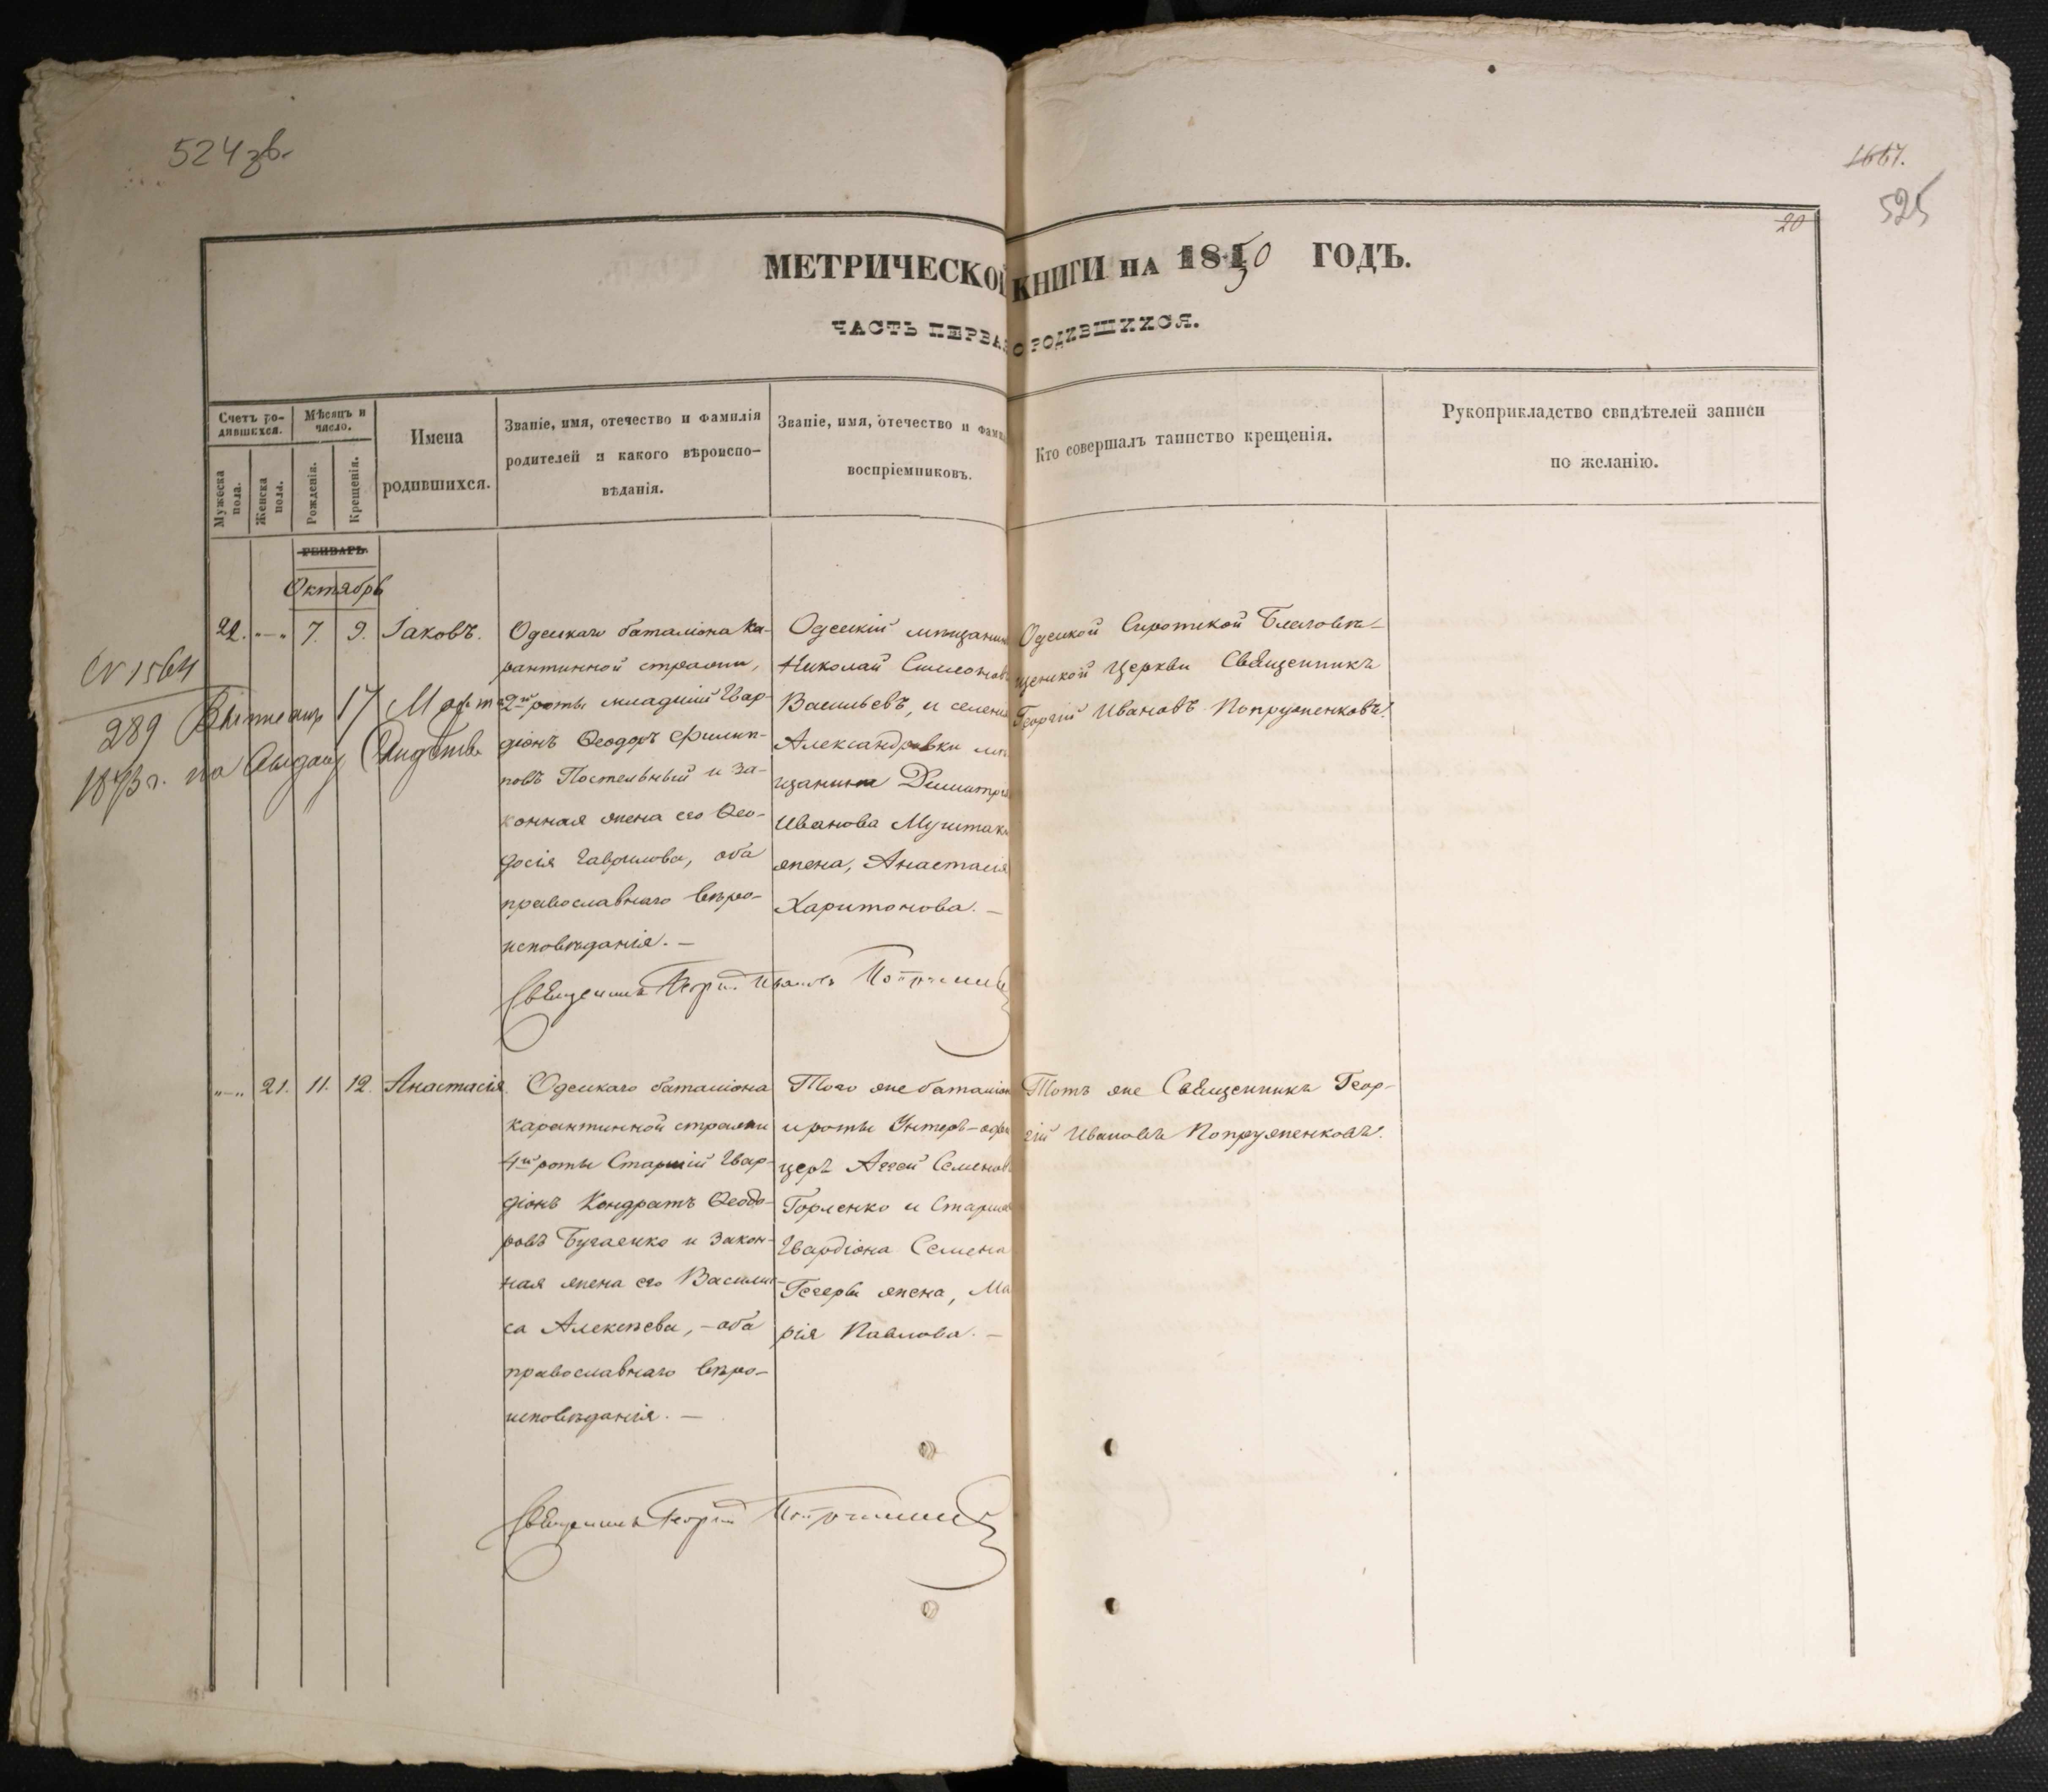 524 зв.
1667.
525
20
МЕТРИЧЕСКОЙ КНИГИ НА 1850 ГОДЪ.
ЧАСТЬ ПЕРВАЯ О РОДИВШИХСЯ.
Счетъ ро-
дившихся.
Мѣсяцъ и
число.
Мужеска
пола.
Женска
пола.
Рожденія.
Крещенія.
Имена
родившихся.
Званіе, имя, отечество и фамилія
родителей и какого вѣроиспо-
вѣданія.
Званіе, имя, отечество и фами
воспріемниковъ.
Кто совершалъ таинство крещенія.
Рукоприкладство свидѣтелей записи
по желанію.
ГЕНВАРЬ
Октябрь
22. „—„ 7. 9. Іаковъ.
Одескаго баталіона ка-
рантинной стражи,
2й роты младшій Гвар-
діонъ Ѳеодоръ Филип-
повъ Постельный и за-
конная жена его Ѳео-
досія Гаврилова, оба
православнаго вѣро-
исповѣданія. —
Одескій мѣщанинъ
Николай Симеоновъ
Васильевъ, и селенія
Александровки мѣ
щанина Димитрія
Иванова Муштак
жена, Анастасія
Харитонова. —
Одеской Сиротской Благовѣ-
щенской Церкви Священникъ
Георгій Ивановъ Попруженковъ.
N 1564
289
1873 г.
17 Марта
на
Священникъ Георгій Ивановъ
„—„ 21. 11. 12. Анастасія.
Одескаго баталіона
карантинной стражи
4й роты Старшій Гвар-
діонъ Кондратъ Ѳеодо-
ровъ Бугаенко и закон-
ная жена его Васили-
са Алексѣева, — оба
православнаго вѣро-
исповѣданія. —
Того же баталіон
и роты Унтеръ-офи
церъ Аггей Семеновъ
Горленко и Старша
Гвардіона Семена
Гегеры жена, Ма
рія Павлова. —
Тотъ же Священникъ Геор-
гій Ивановъ Попруженковъ.
Священникъ Георгій